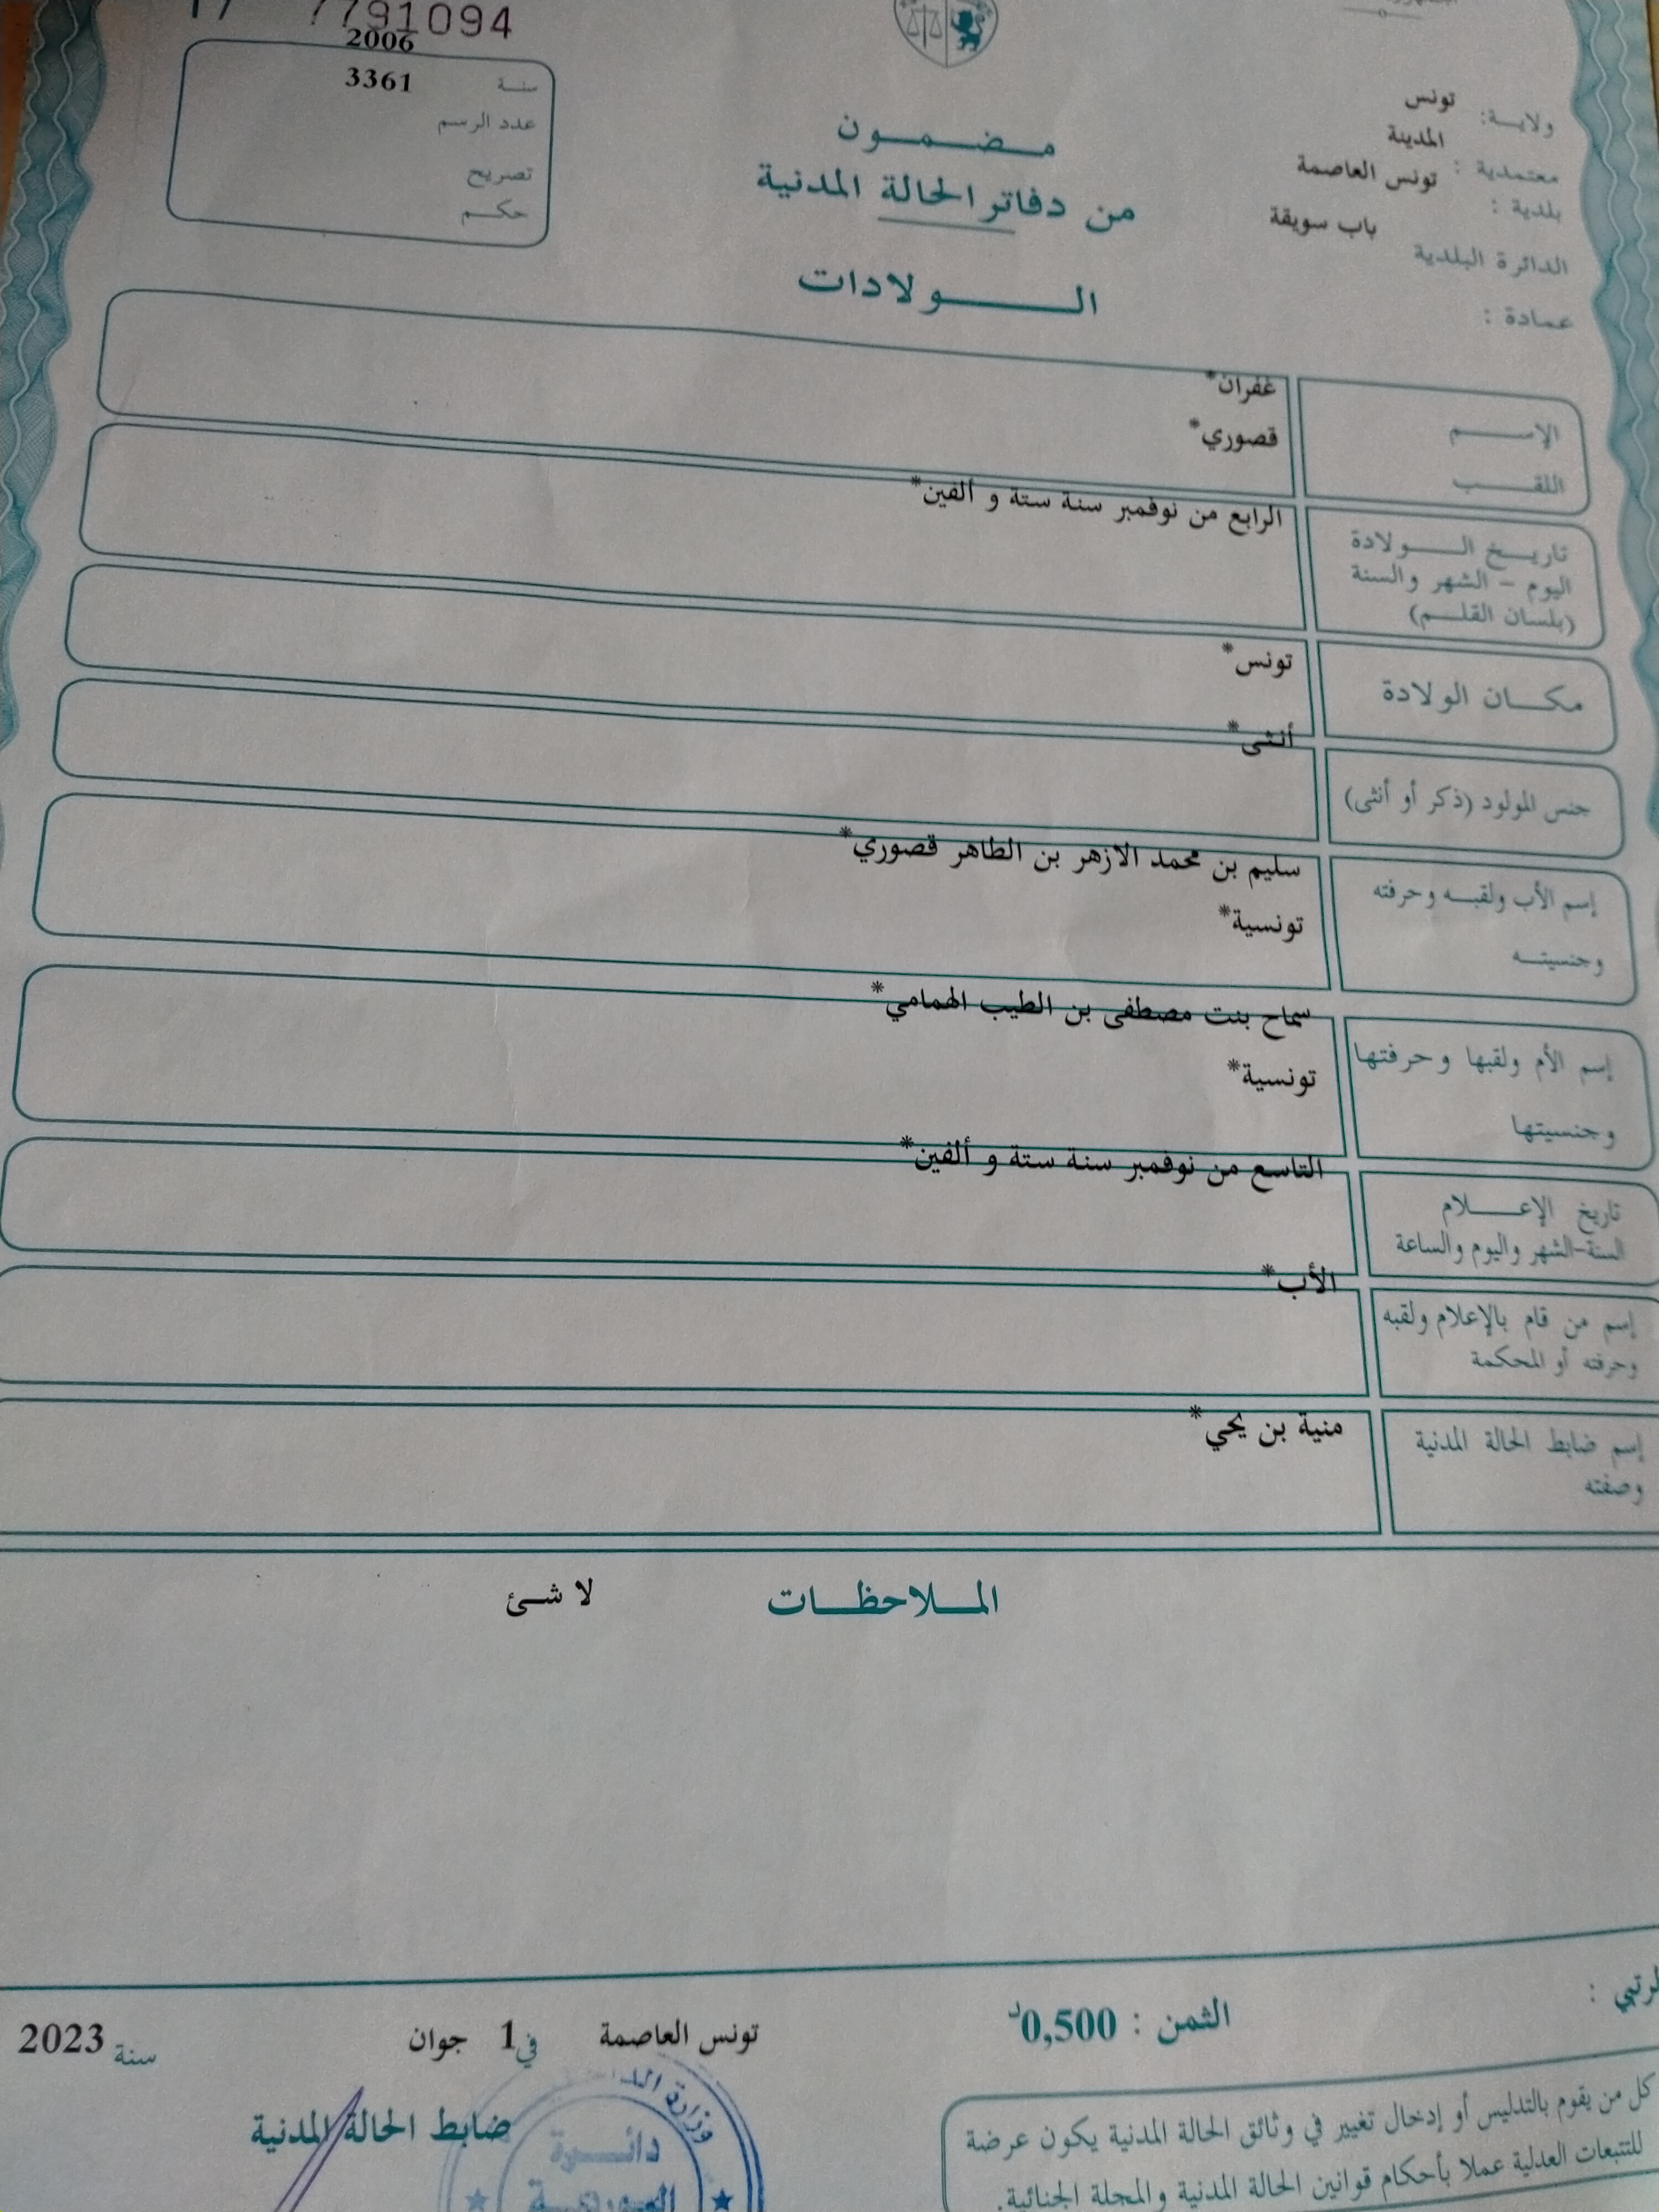 7791094
2006
سنة
3361
عدد الرسم
تصريح
حكم
مضمون
من دفاتر الحالة المدنية
الولادات
ولاية: تونس
المدينة
معتمدية :
تونس العاصمة
بلدية :
باب سويقة
الدائرة البلدية
عمادة :
غفران*
الإسم
قصوري*
اللقب
الرابع من نوفمبر سنة ستة و ألفين*
تاريخ الولادة
اليوم - الشهر والسنة
(بلسان القلم)
تونس*
مكان الولادة
أنثى*
جنس المولود (ذكر أو أنثى)
سليم بن محمد الازهر بن الطاهر قصوري*
إسم الأب ولقبه وحرفته
تونسية*
وجنسيته
سماح بنت مصطفى بن الطيب الهمامي*
إسم الأم ولقبها وحرفتها
تونسية*
وجنسيتها
التاسع من نوفمبر سنة ستة و ألفين*
تاريخ الإعلام
السنة-الشهر واليوم والساعة
الأب*
إسم من قام بالإعلام ولقبه
وحرفته أو المحكمة
منية بن يحي*
إسم ضابط الحالة المدنية
وصفته
الملاحظات
لا شئ
الثمن : 0,500د
تونس العاصمة في 1 جوان سنة 2023
ضابط الحالة المدنية
وزارة
دائرة
كل من يقوم بالتدليس أو إدخال تغيير في وثائق الحالة المدنية يكون عرضة
للتتبعات العدلية عملا بأحكام قوانين الحالة المدنية والمجلة الجنائية.